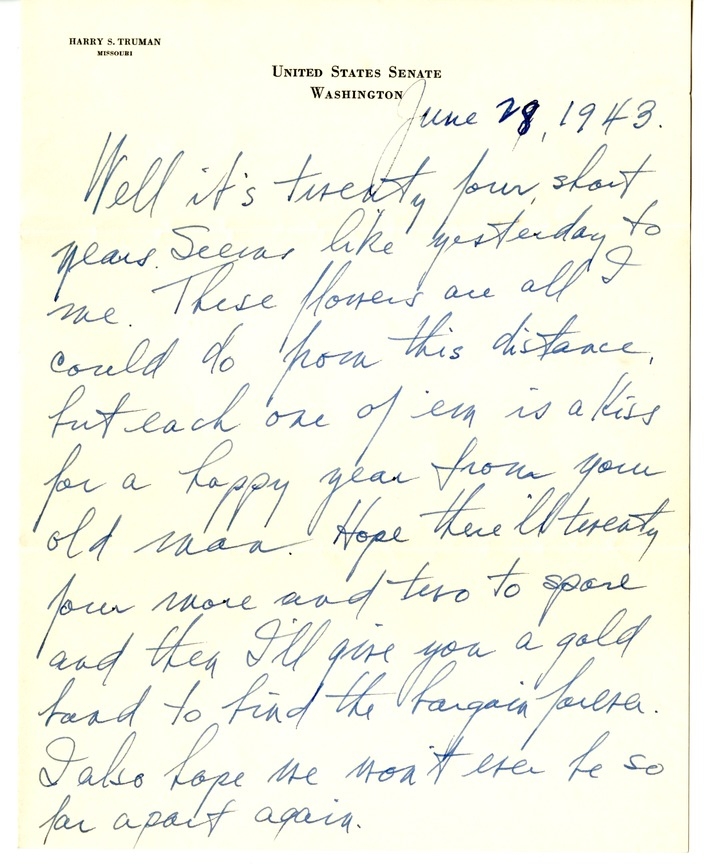 HARRY S. TRUMAN
MISSOURI
UNITED STATES SENATE
WASHINGTON
June 28, 1943.
Well it's twenty four short
years. Seems like yesterday to
me. These flowers are all I
could do from this distance,
but each one of 'em is a kiss
for a happy year from your
old man. Hope there'll twenty
four more and two to spare
and then I'll give you a gold
band to bind the bargain forever.
I also hope we won't ever be so
far apart again.